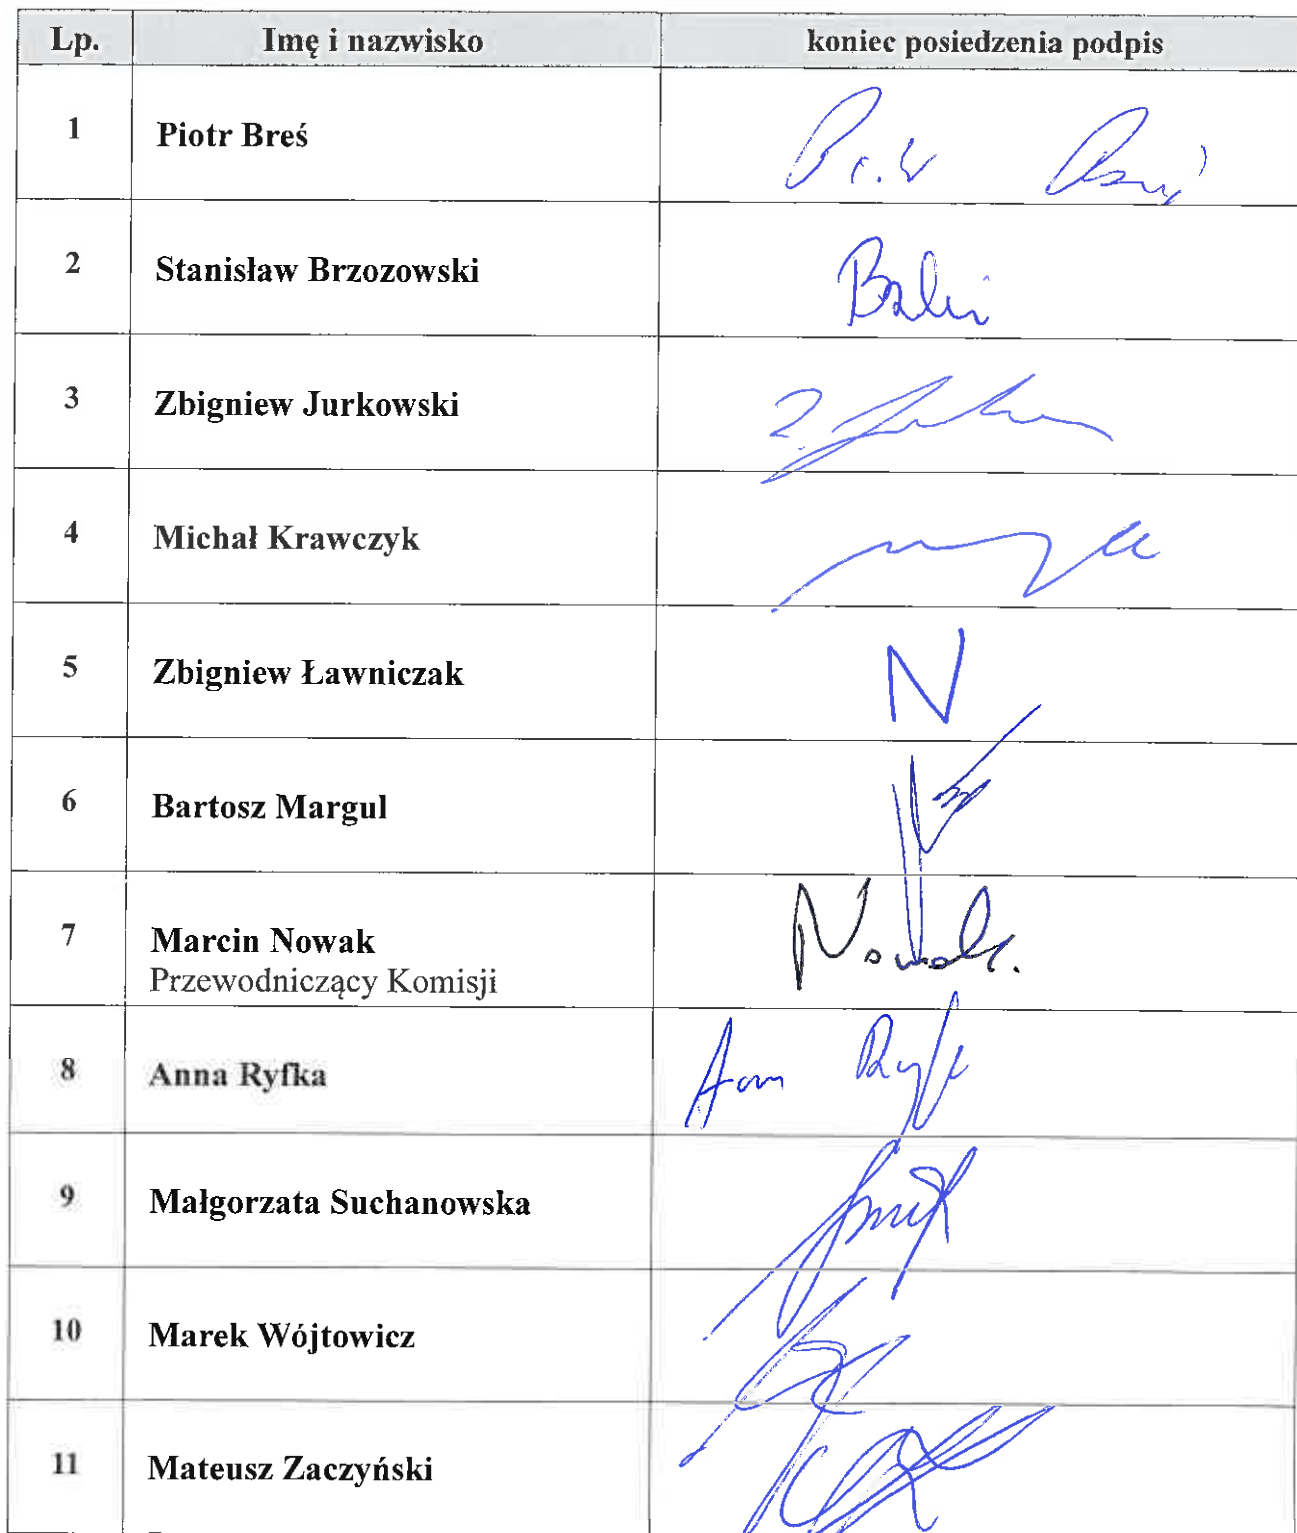 Lp. Imę i nazwisko koniec posiedzenia podpis
1 Piotr Breś
2 Stanisław Brzozowski
3 Zbigniew Jurkowski
4 Michał Krawczyk
5 Zbigniew Ławniczak N
6 Bartosz Margul
7 Marcin Nowak Nowak.
Przewodniczący Komisji
8 Anna Ryfka
9 Małgorzata Suchanowska
10 Marek Wójtowicz
11 Mateusz Zaczyński